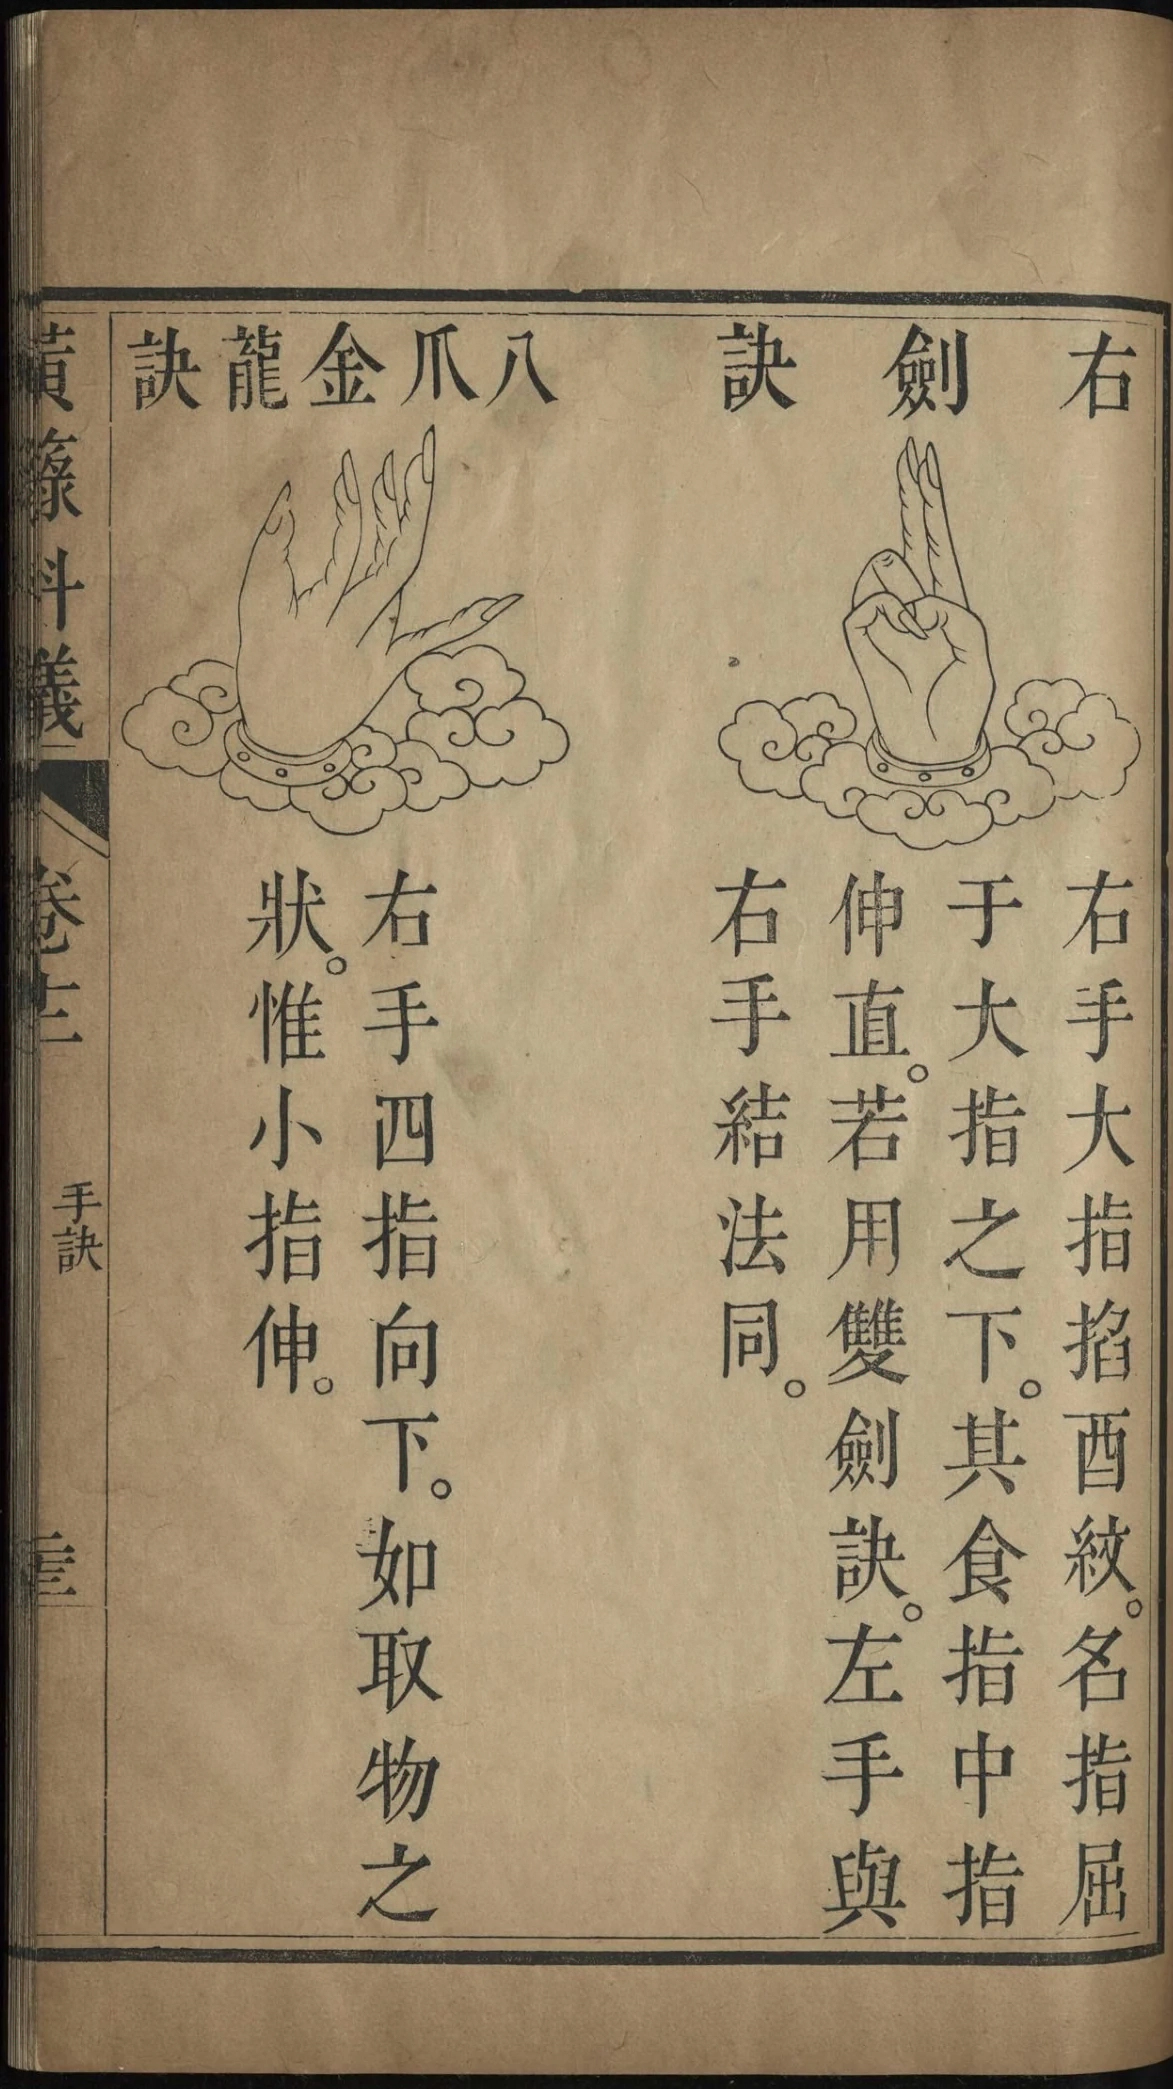 右劍訣
右手大指掐酉紋。名指屈
于大指之下。其食指中指
伸直。若用雙劍訣。左手與
右手結法同。
八爪金龍訣
右手四指向下。如取物之
狀。惟小指伸。
籙科儀
卷十二
手訣